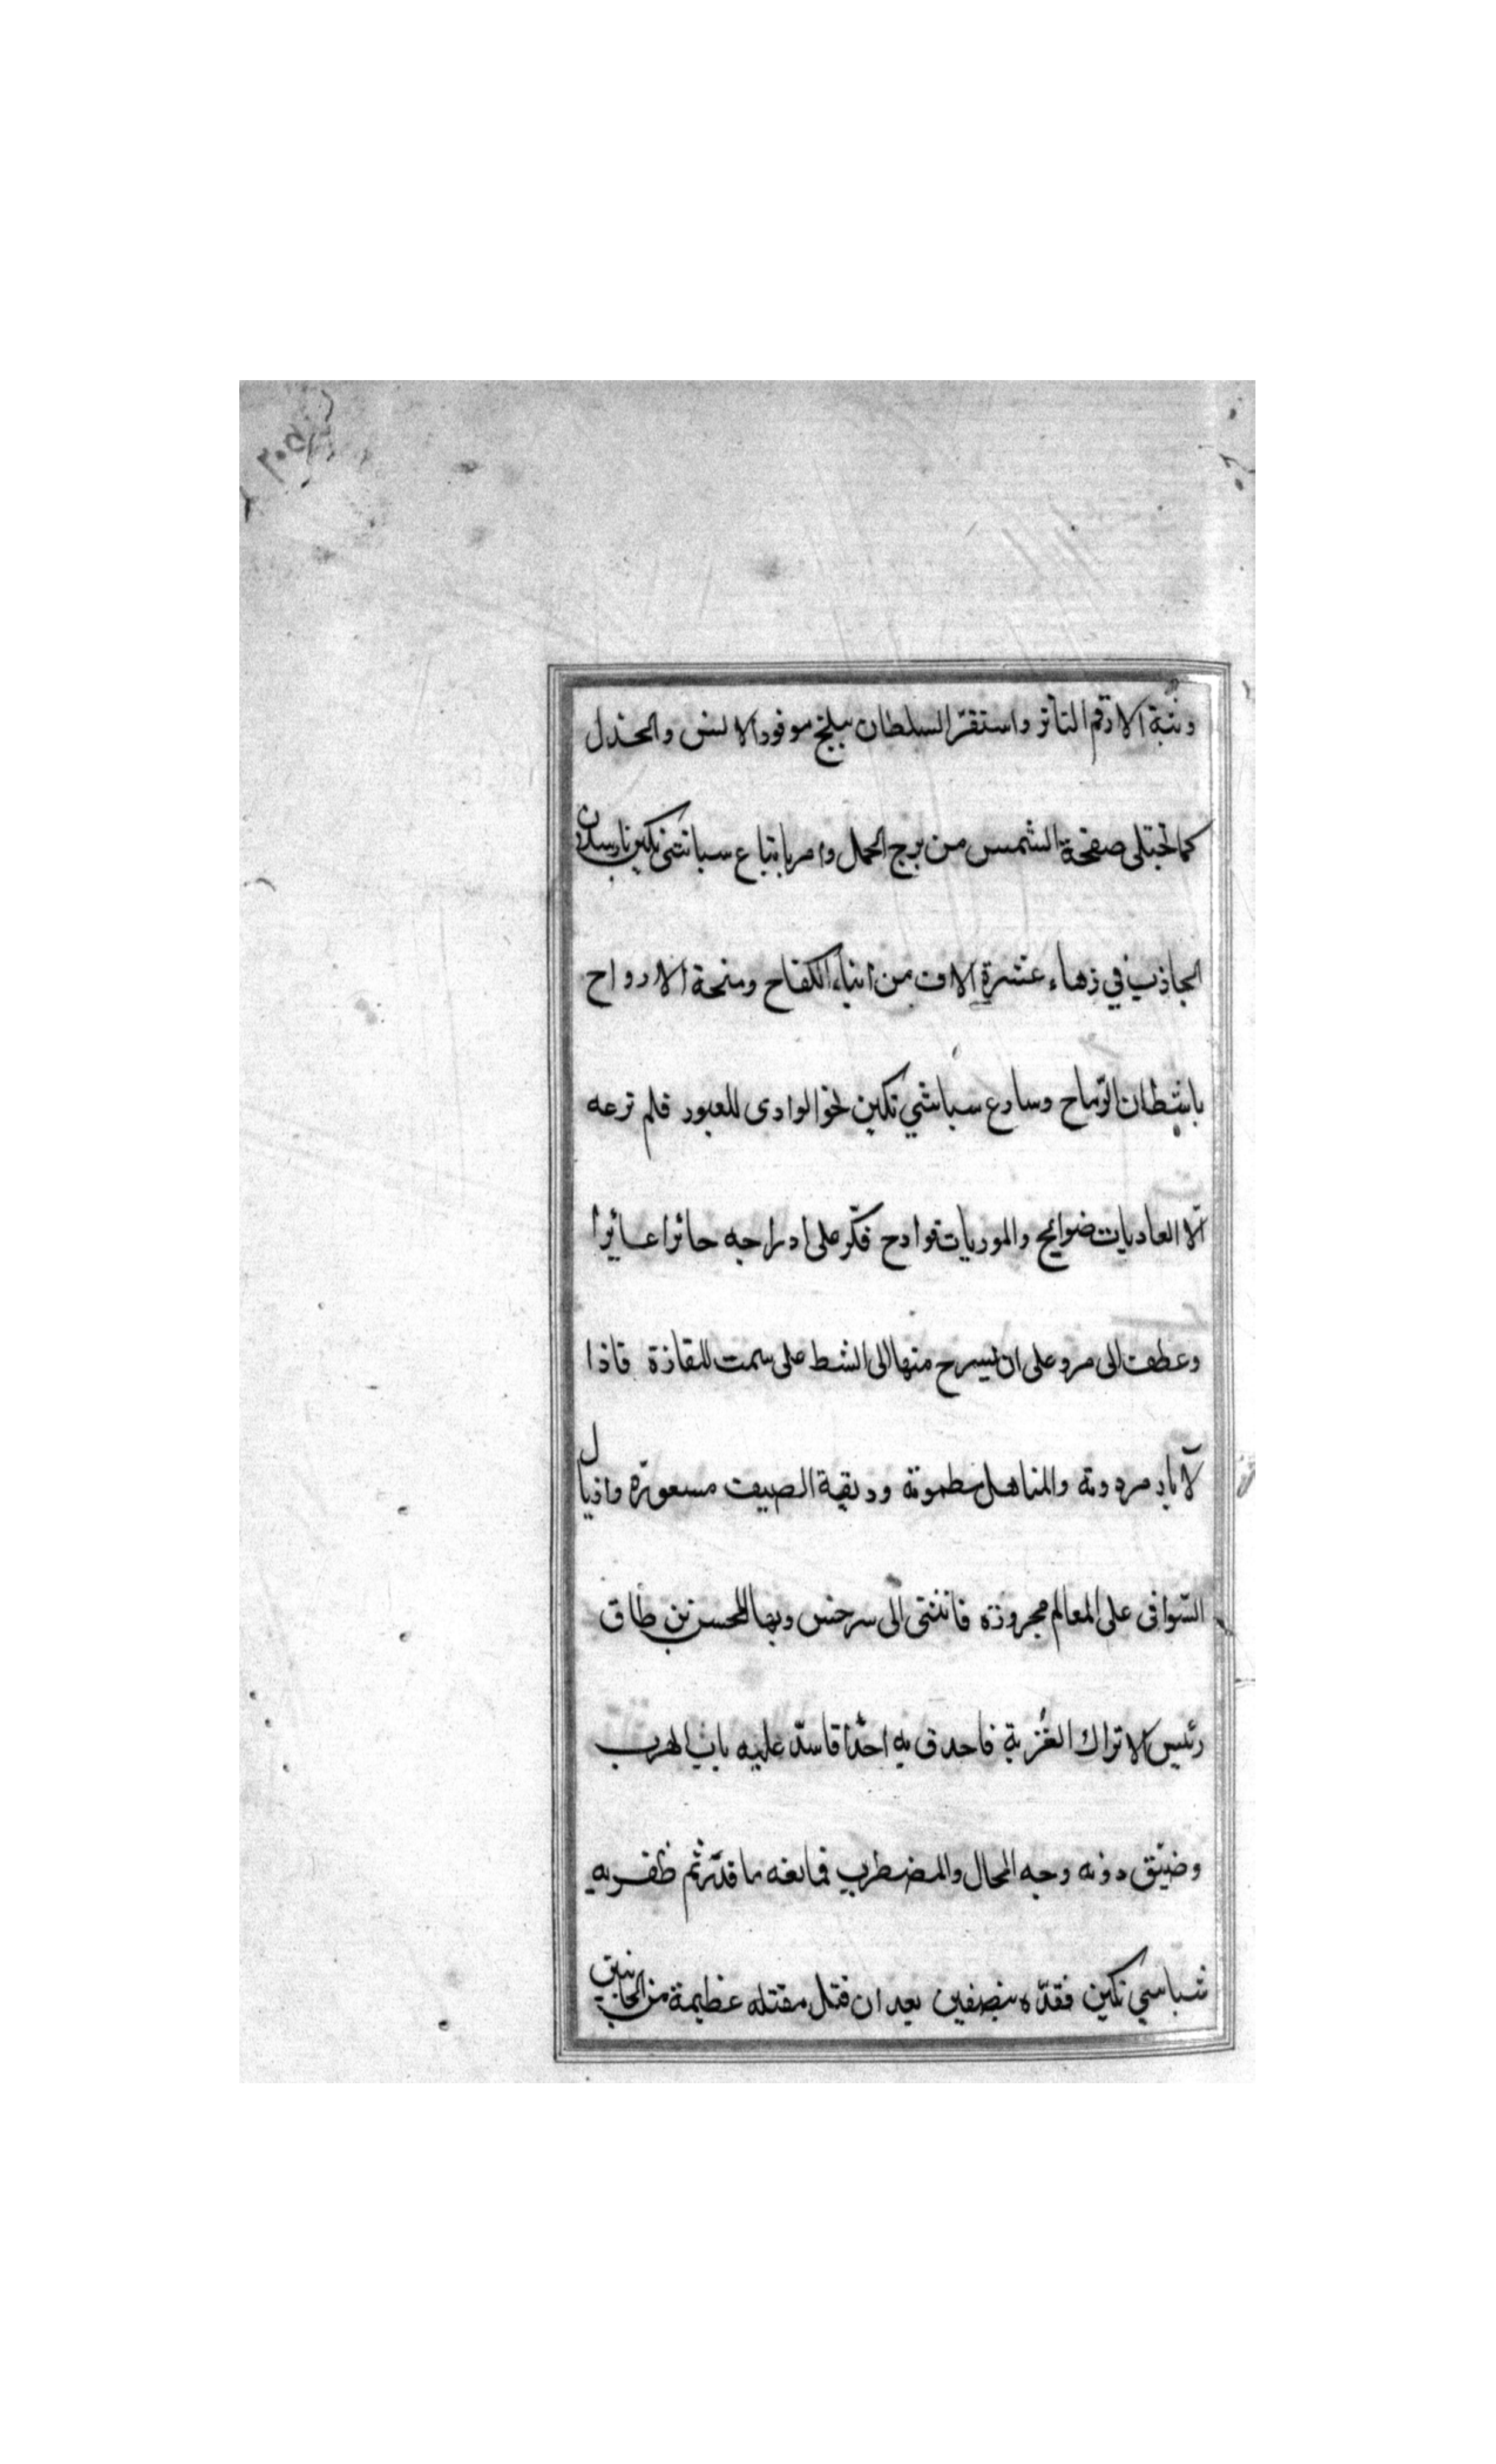 وثبة الارقم الثائر واستقرّ السلطان ببلخ موفور الانس والجذل
كما تجتلى صفحة الشمس من برج الحمل وامر باتباع سباشى تكين بارسلان
الجاذب في زهاء عشرة الاف من ابناء الكفاح ومنحة الارواح
باشطان الرّماح وسارع سباشي تكين نحو الوادى للعبور فلم ترعه
الّا العاديات ضوابح والموريات قوادح فكّر على ادراجه حائرا عائرا
وعطف الى مرو على ان ليسرح منها الى الشط على سمت المفازة فاذا
لآبار مردومة والمناهل مطمومة وديقة الصيف مسعورة واذيال
السّوافى على المعالم مجرورة فانثنى الى سرخس وبها المحسن بن طاق
رئيس الاتراك الغُزية فاحدق به احدّاقا سدّ عليه باب الهرب
وضيّق دونه وجه المجال والمضطرب فمانعه ما قدّر ثم ظفر به
شباسي تكين فقدّه بنصفين بعد ان قتل مقتله عظيمة من الجانبين